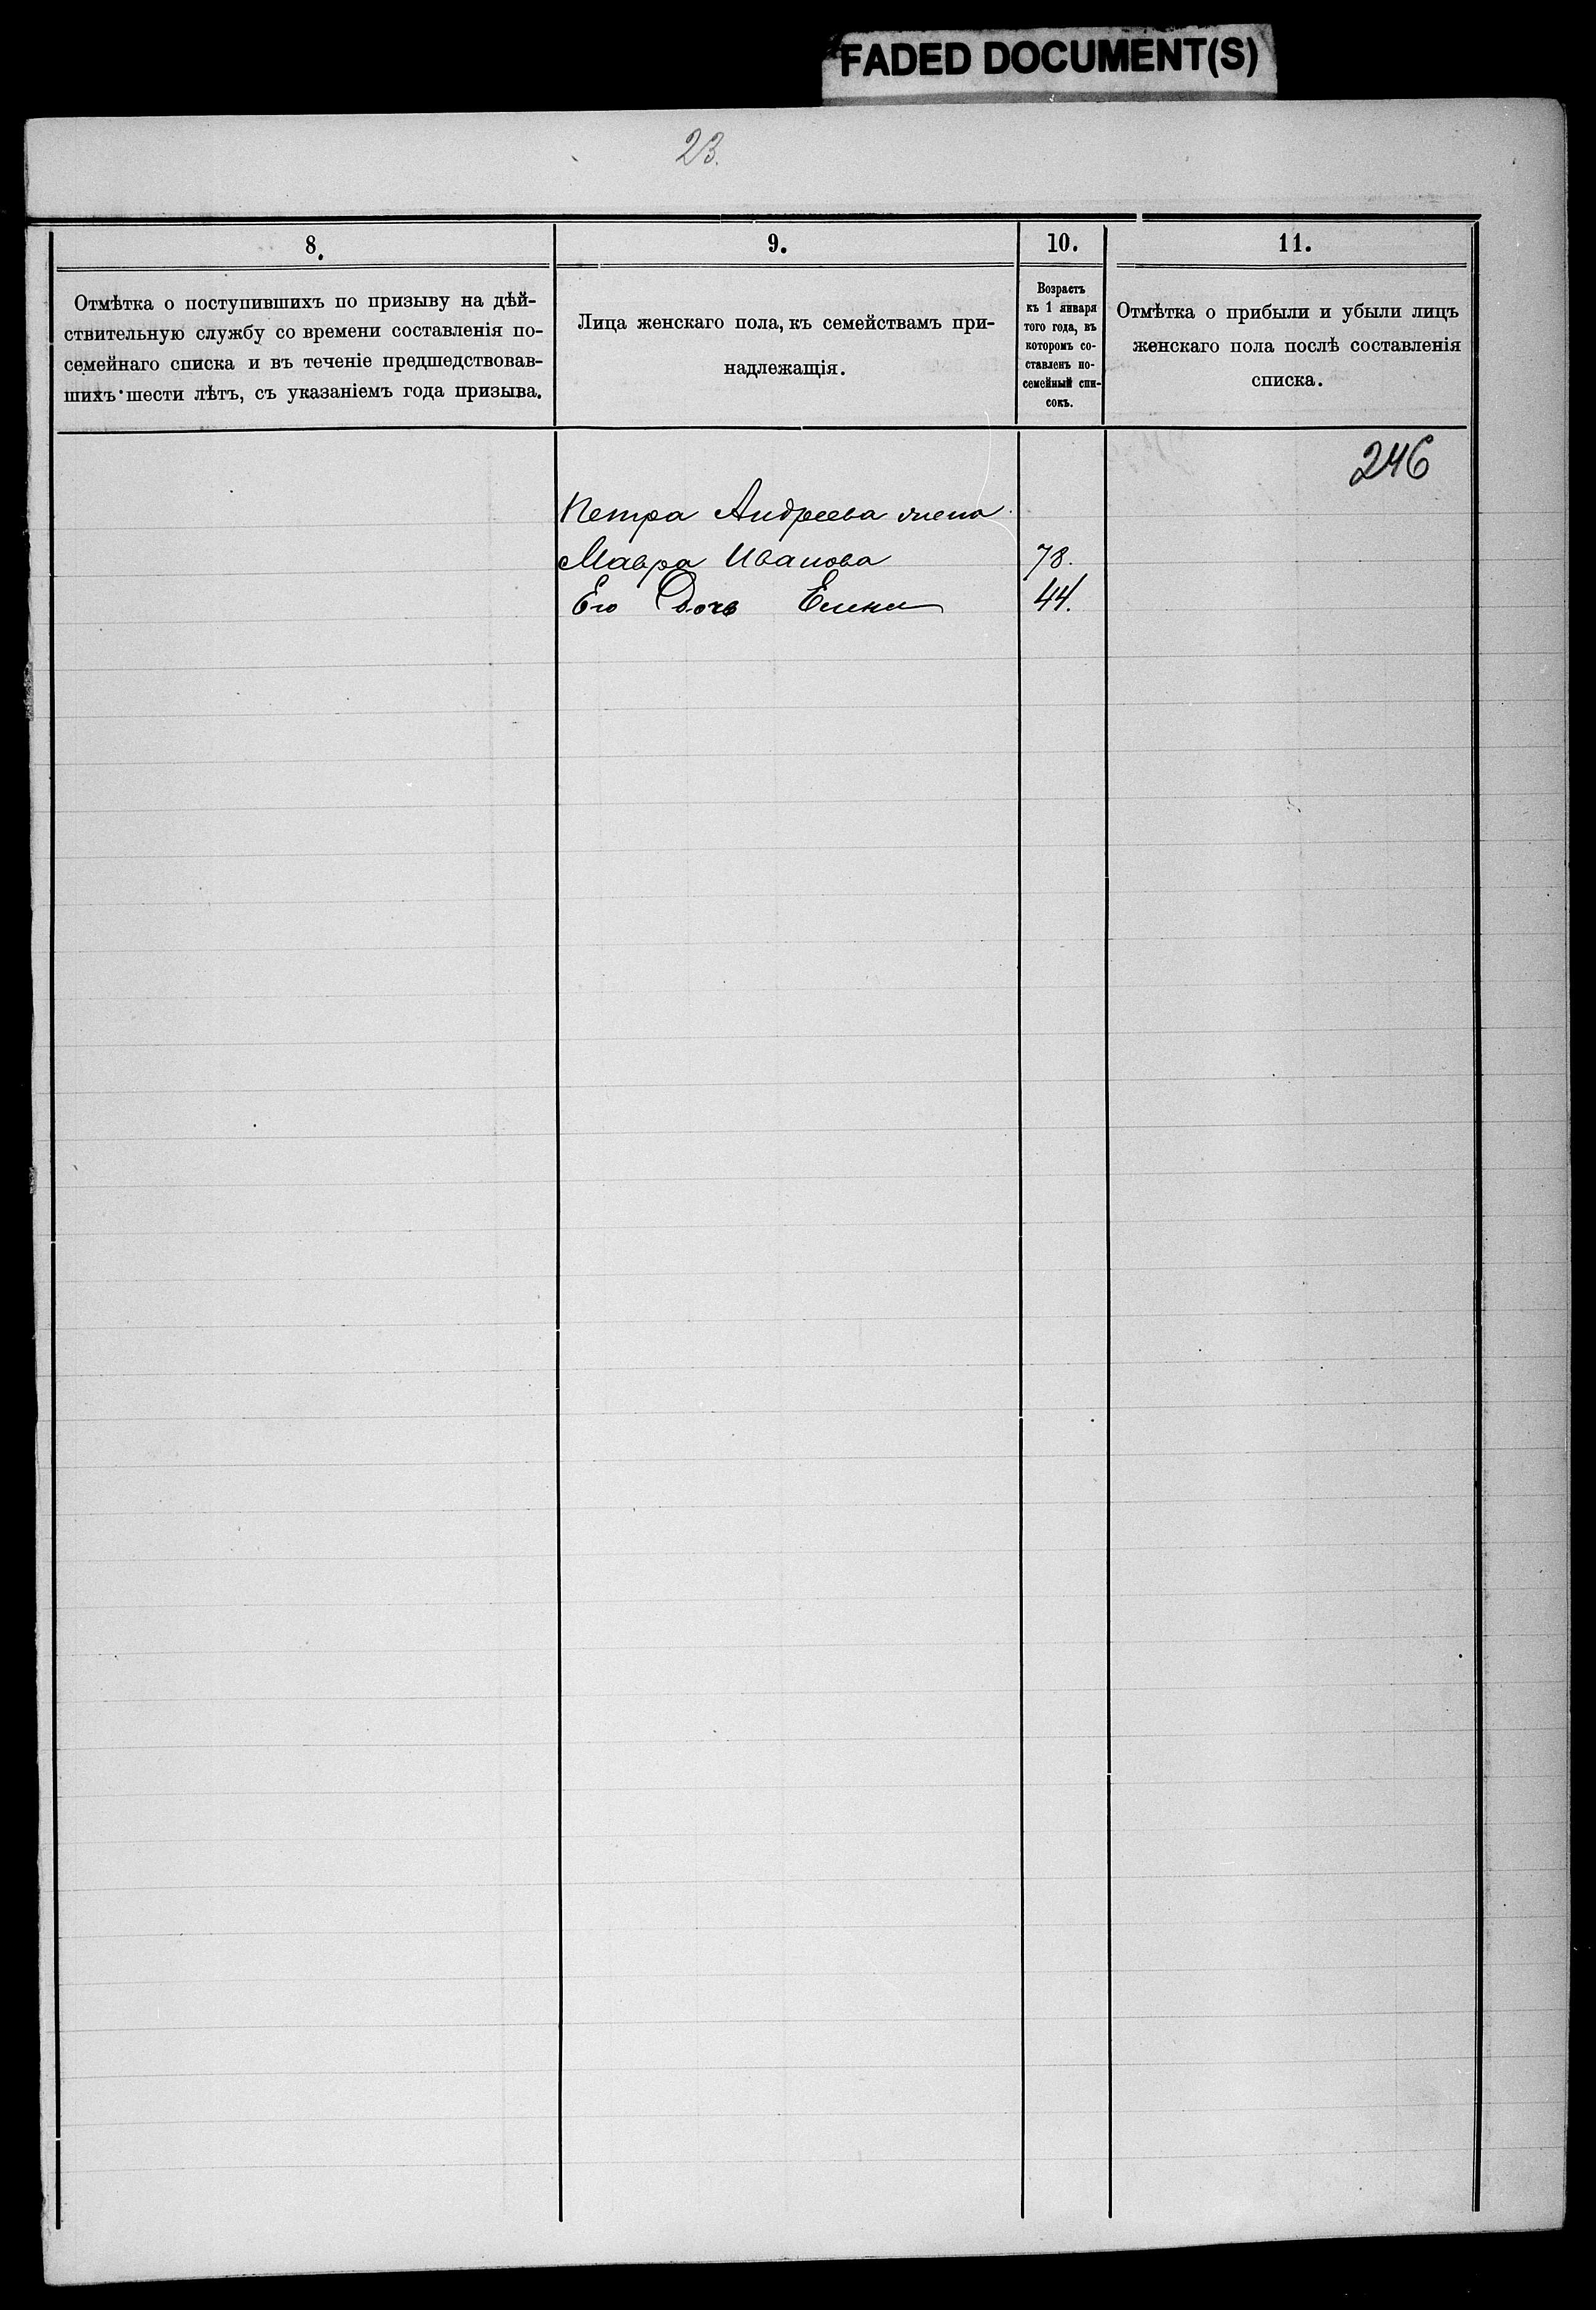 FADED DOCUMENT(S)
23.
8.
9.
10.
11.
Отмѣтка о поступившихъ по призыву на дѣй-
ствительную службу со времени составленія по-
семейнаго списка и въ теченіе предшедствовав-
шихъ шести лѣтъ, съ указаніемъ года призыва.
Лица женскаго пола, къ семействамъ при-
надлежащія.
Возрастъ
къ 1 января
того года, въ
которомъ со-
ставленъ по-
семейный спи-
сокъ.
Отмѣтка о прибыли и убыли лицъ
женскаго пола послѣ составленія
списка.
246
Петра Андреева жена
Мавра Иванова 78.
Его Дочь 44.